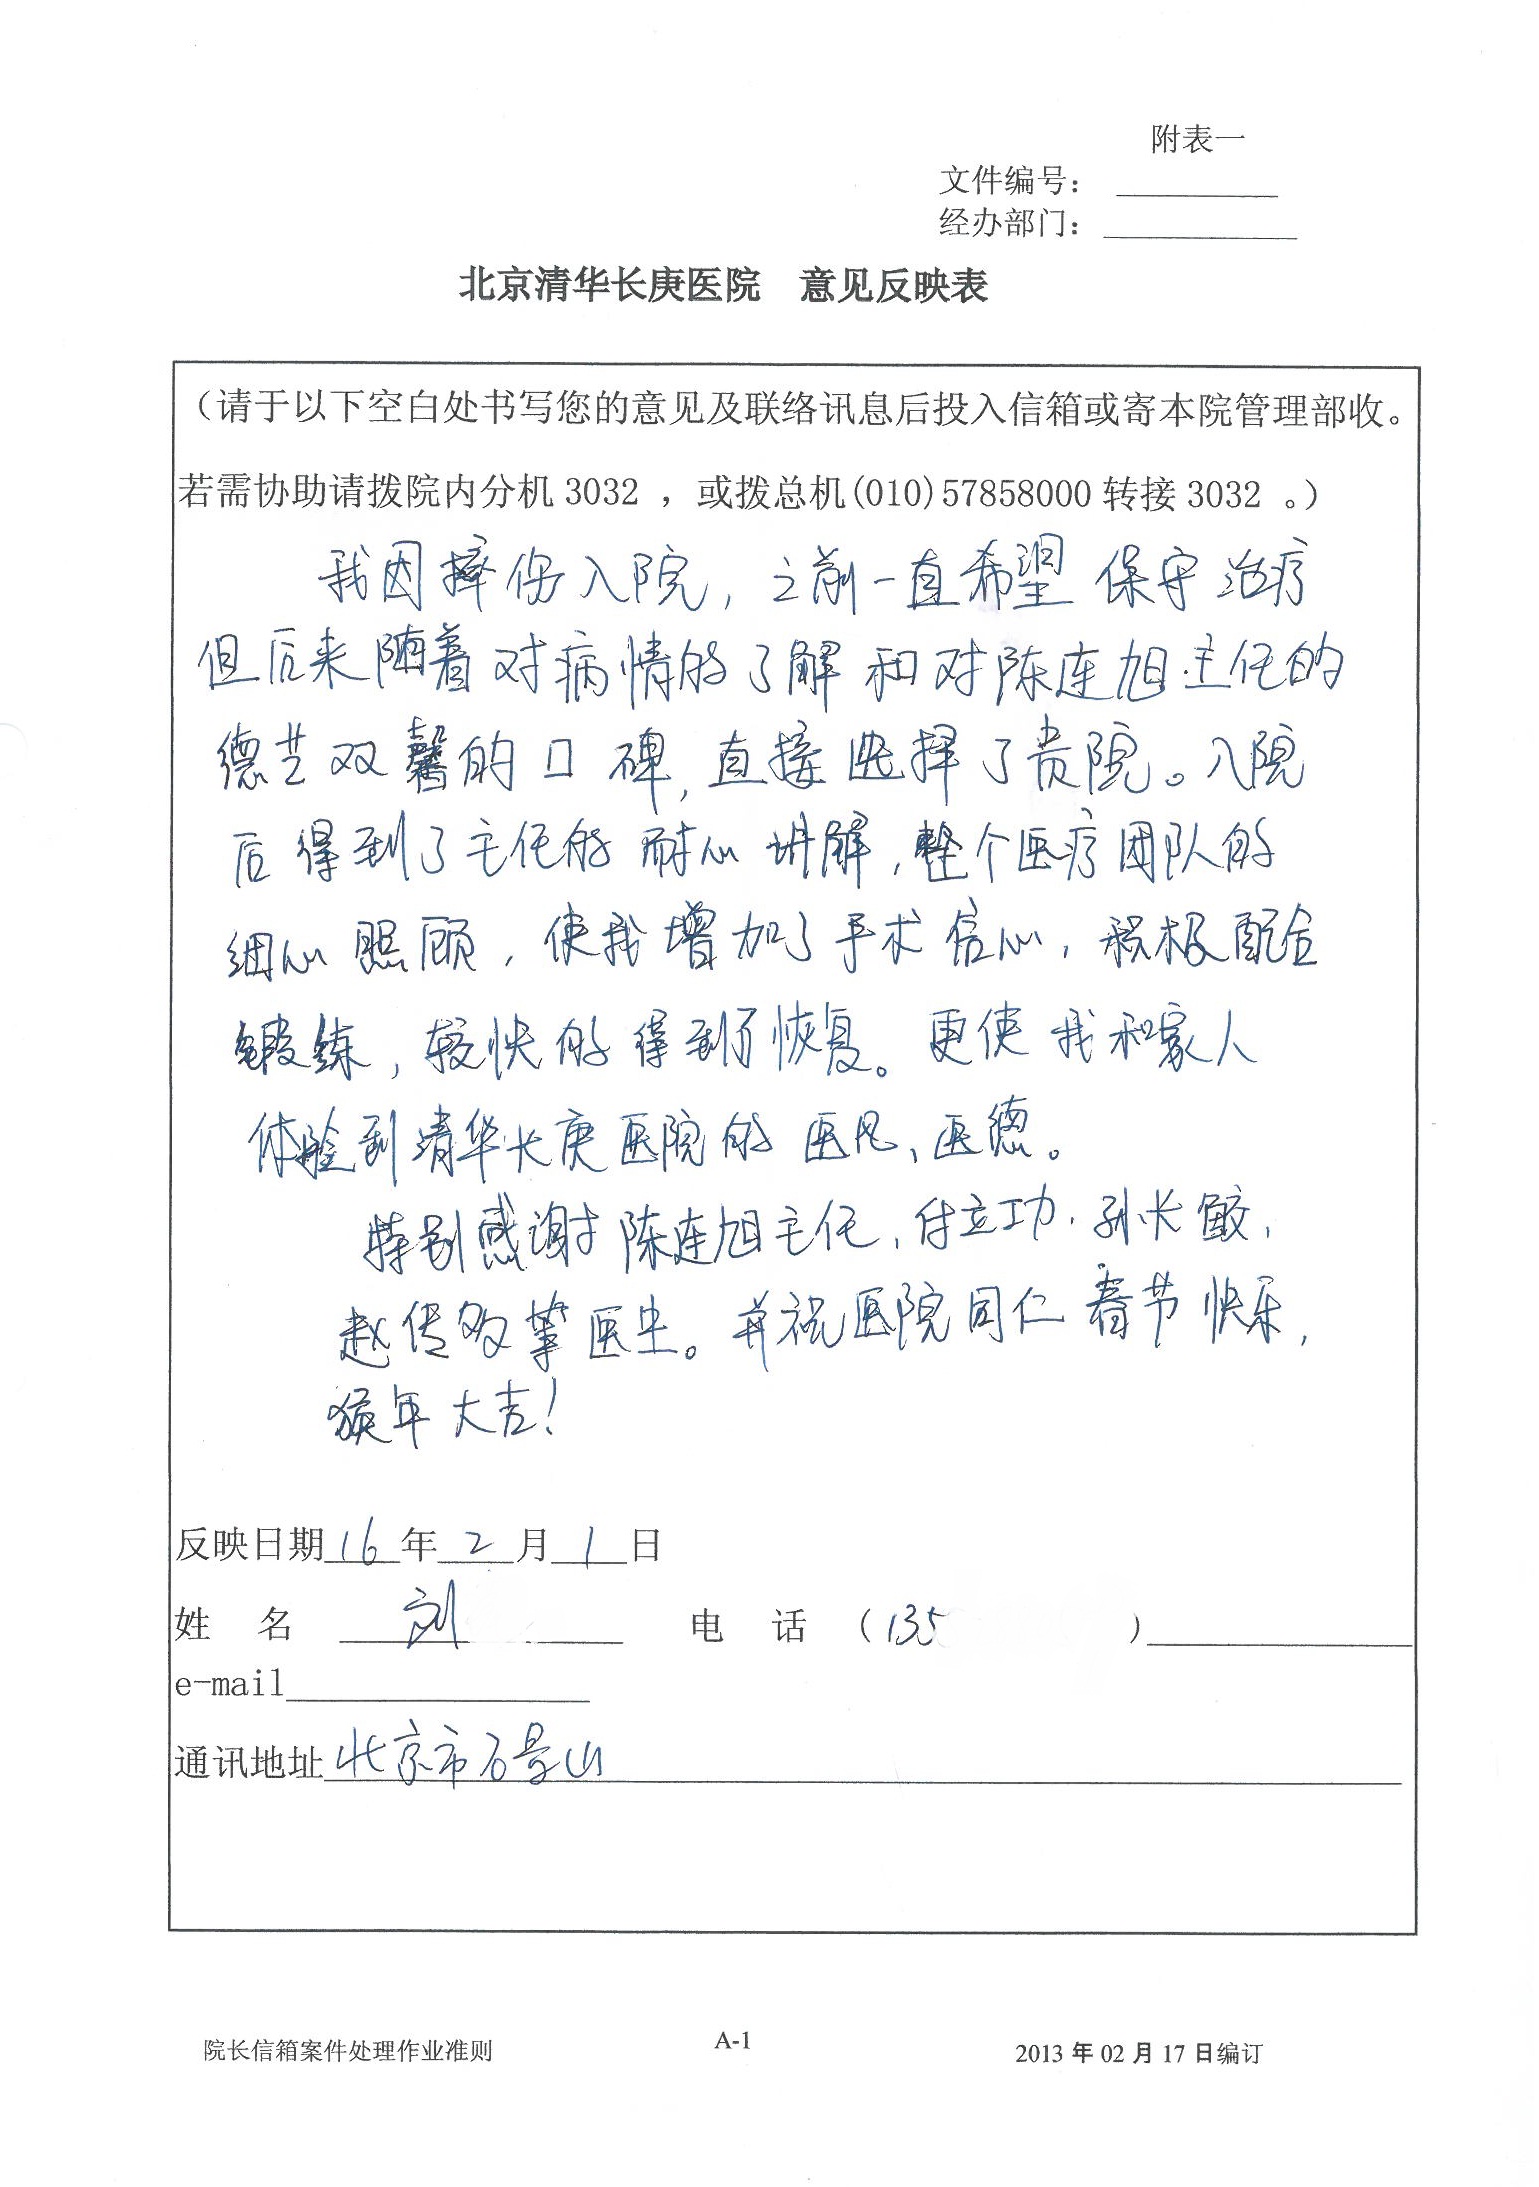 附表一
文件编号：
经办部门：
北京清华长庚医院 意见反映表
（请于以下空白处书写您的意见及联络讯息后投入信箱或寄本院管理部收。
若需协助请拨院内分机 3032 ，或拨总机(010)57858000 转接 3032 。）
我因摔伤入院，之前一直希望保守治疗
但后来随着对病情的了解和对陈连旭主任的
德艺双馨的口碑，直接选择了贵院。入院
后得到了主任的耐心讲解，整个医疗团队的
细心照顾，使我增加了手术信心，积极配合
锻练，较快的得到了恢复。更使我和家人
体验到清华长庚医院的医风、医德。
特别感谢陈连旭主任、付立功、孙长鲛、
赵传 医生。并祝医院同仁春节快乐，
猴年大吉！
反映日期 16 年 2 月 1 日
姓 名 刘 电 话 （135 ）
e-mail
通讯地址 北京市石景山
院长信箱案件处理作业准则 A-1 2013 年 02 月 17 日编订